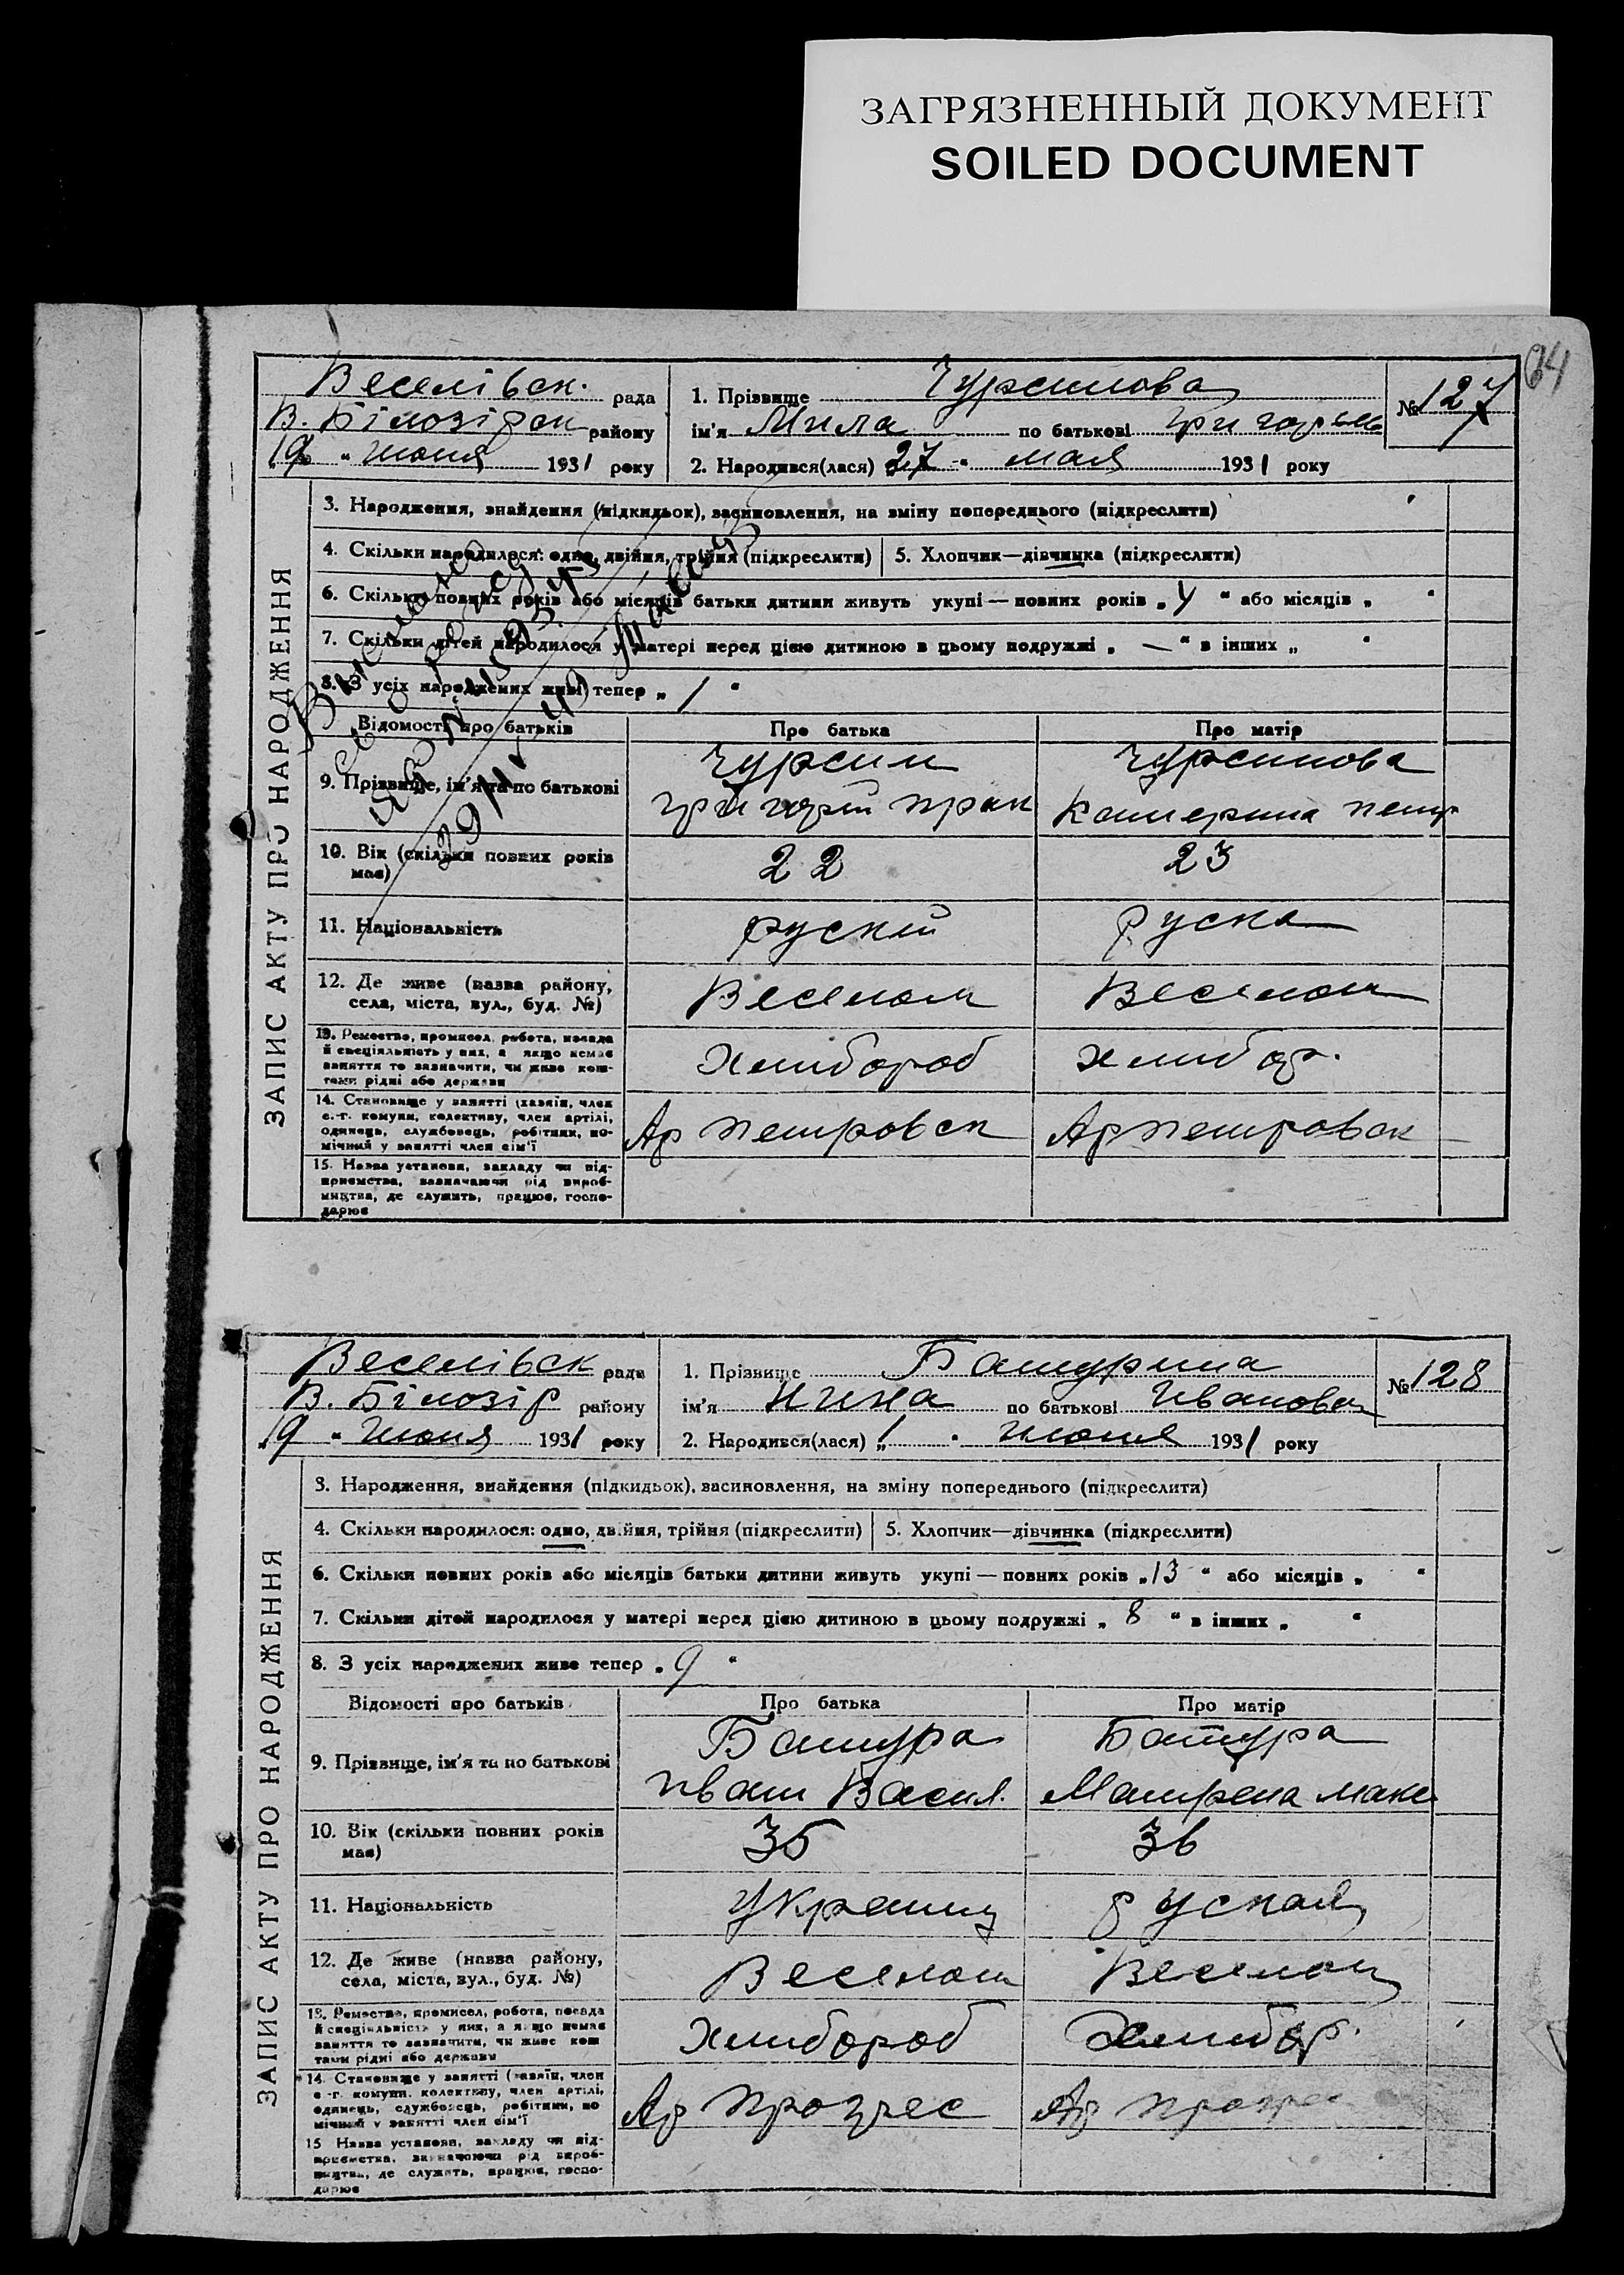 ЗАГРЯЗНЕННЫЙ ДОКУМЕНТ
SOILED DOCUMENT
64
Веселівск. рада
В. Білозірск району
19 " июня 1931 року
1. Прізвище Чурсинова
ім'я Мила по батькові григорьев
2. Народився(лася) 27 " мая 1931 року
№ 127
ЗАПИС АКТУ ПРО НАРОДЖЕННЯ
3. Народження, знайдення (підкидьок), засиновлення, на зміну попереднього (підкреслити)
4. Скільки народилося: одно, двійня, трійня (підкреслити) 5. Хлопчик—дівчинка (підкреслити)
6. Скільки повних років або місяців батьки дитини живуть укупі — повних років „ 4 " або місяців „ "
7. Скільки дітей народилося у матері перед цією дитиною в цьому подружжі „ — " в інших „ "
8. З усіх народжених живі тепер „ 1 "
Відомості про батьків Про батька Про матір
9. Прізвище, ім'я та по батькові
Чурсин
григорий прок
Чурсинова
Катерина петр
10. Вік (скільки повних років має) 22 23
11. Національність руский руска
12. Де живе (назва району, села, міста, вул., буд. №) Веселом Веселом
13. Ремество, промисел, робота, посада й спеціяльність у них, а якщо немає заняття то зазначити, чи живе коштами рідні або держави Хлибороб хлибор.
14. Становище у занятті (хазяїн, член с.-г. комуни, колективу, член артілі, одинець, службовець, робітник, помічний у занятті член сім'ї Ар петровск Ар петровск
15. Назва установи, закладу чи підприємства, зазначаючи рід виробництва, де служить, працює, господарює
Веселівск рада
В. Білозір району
„19 " Июня 1931 року
1. Прізвище Батурина
ім'я Нина по батькові Ивановн
2. Народився(лася) „1 " июня 1931 року
№ 128
ЗАПИС АКТУ ПРО НАРОДЖЕННЯ
3. Народження, знайдення (підкидьок), засиновлення, на зміну попереднього (підкреслити)
4. Скільки народилося: одно, двійня, трійня (підкреслити) 5. Хлопчик—дівчинка (підкреслити)
6. Скільки повних років або місяців батьки дитини живуть укупі — повних років „13 " або місяців „ "
7. Скільки дітей народилося у матері перед цією дитиною в цьому подружжі „ 8 " в інших „ "
8. З усіх народжених живе тепер „ 9 "
Відомості про батьків Про батька Про матір
9. Прізвище, ім'я та по батькові
Батура
иван Васил.
Батура
Матрена макс
10. Вік (скільки повних років має) 35 36
11. Національність Украинц руская
12. Де живе (назва району, села, міста, вул., буд. №) Веселом Веселом
13. Ремество, промисел, робота, посада й спеціяльність у них, а якщо немає заняття то зазначити, чи живе коштами рідні або держави Хлибороб Хлибор.
14. Становище у занятті (хазяїн, член с.-г. комуни, колективу, член артілі, одинець, службовець, робітник, помічний у занятті член сім'ї Ар прогрес Ар прогрес
15 Назва установи, закладу чи підприємства, зазначаючи рід виробництва, де служить, працює, господарює